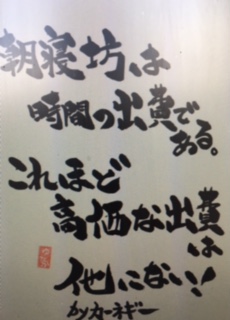 朝寝坊は
時間の出費で
ある。
これほど
高価な出費
は
他にない!
byカーネギー